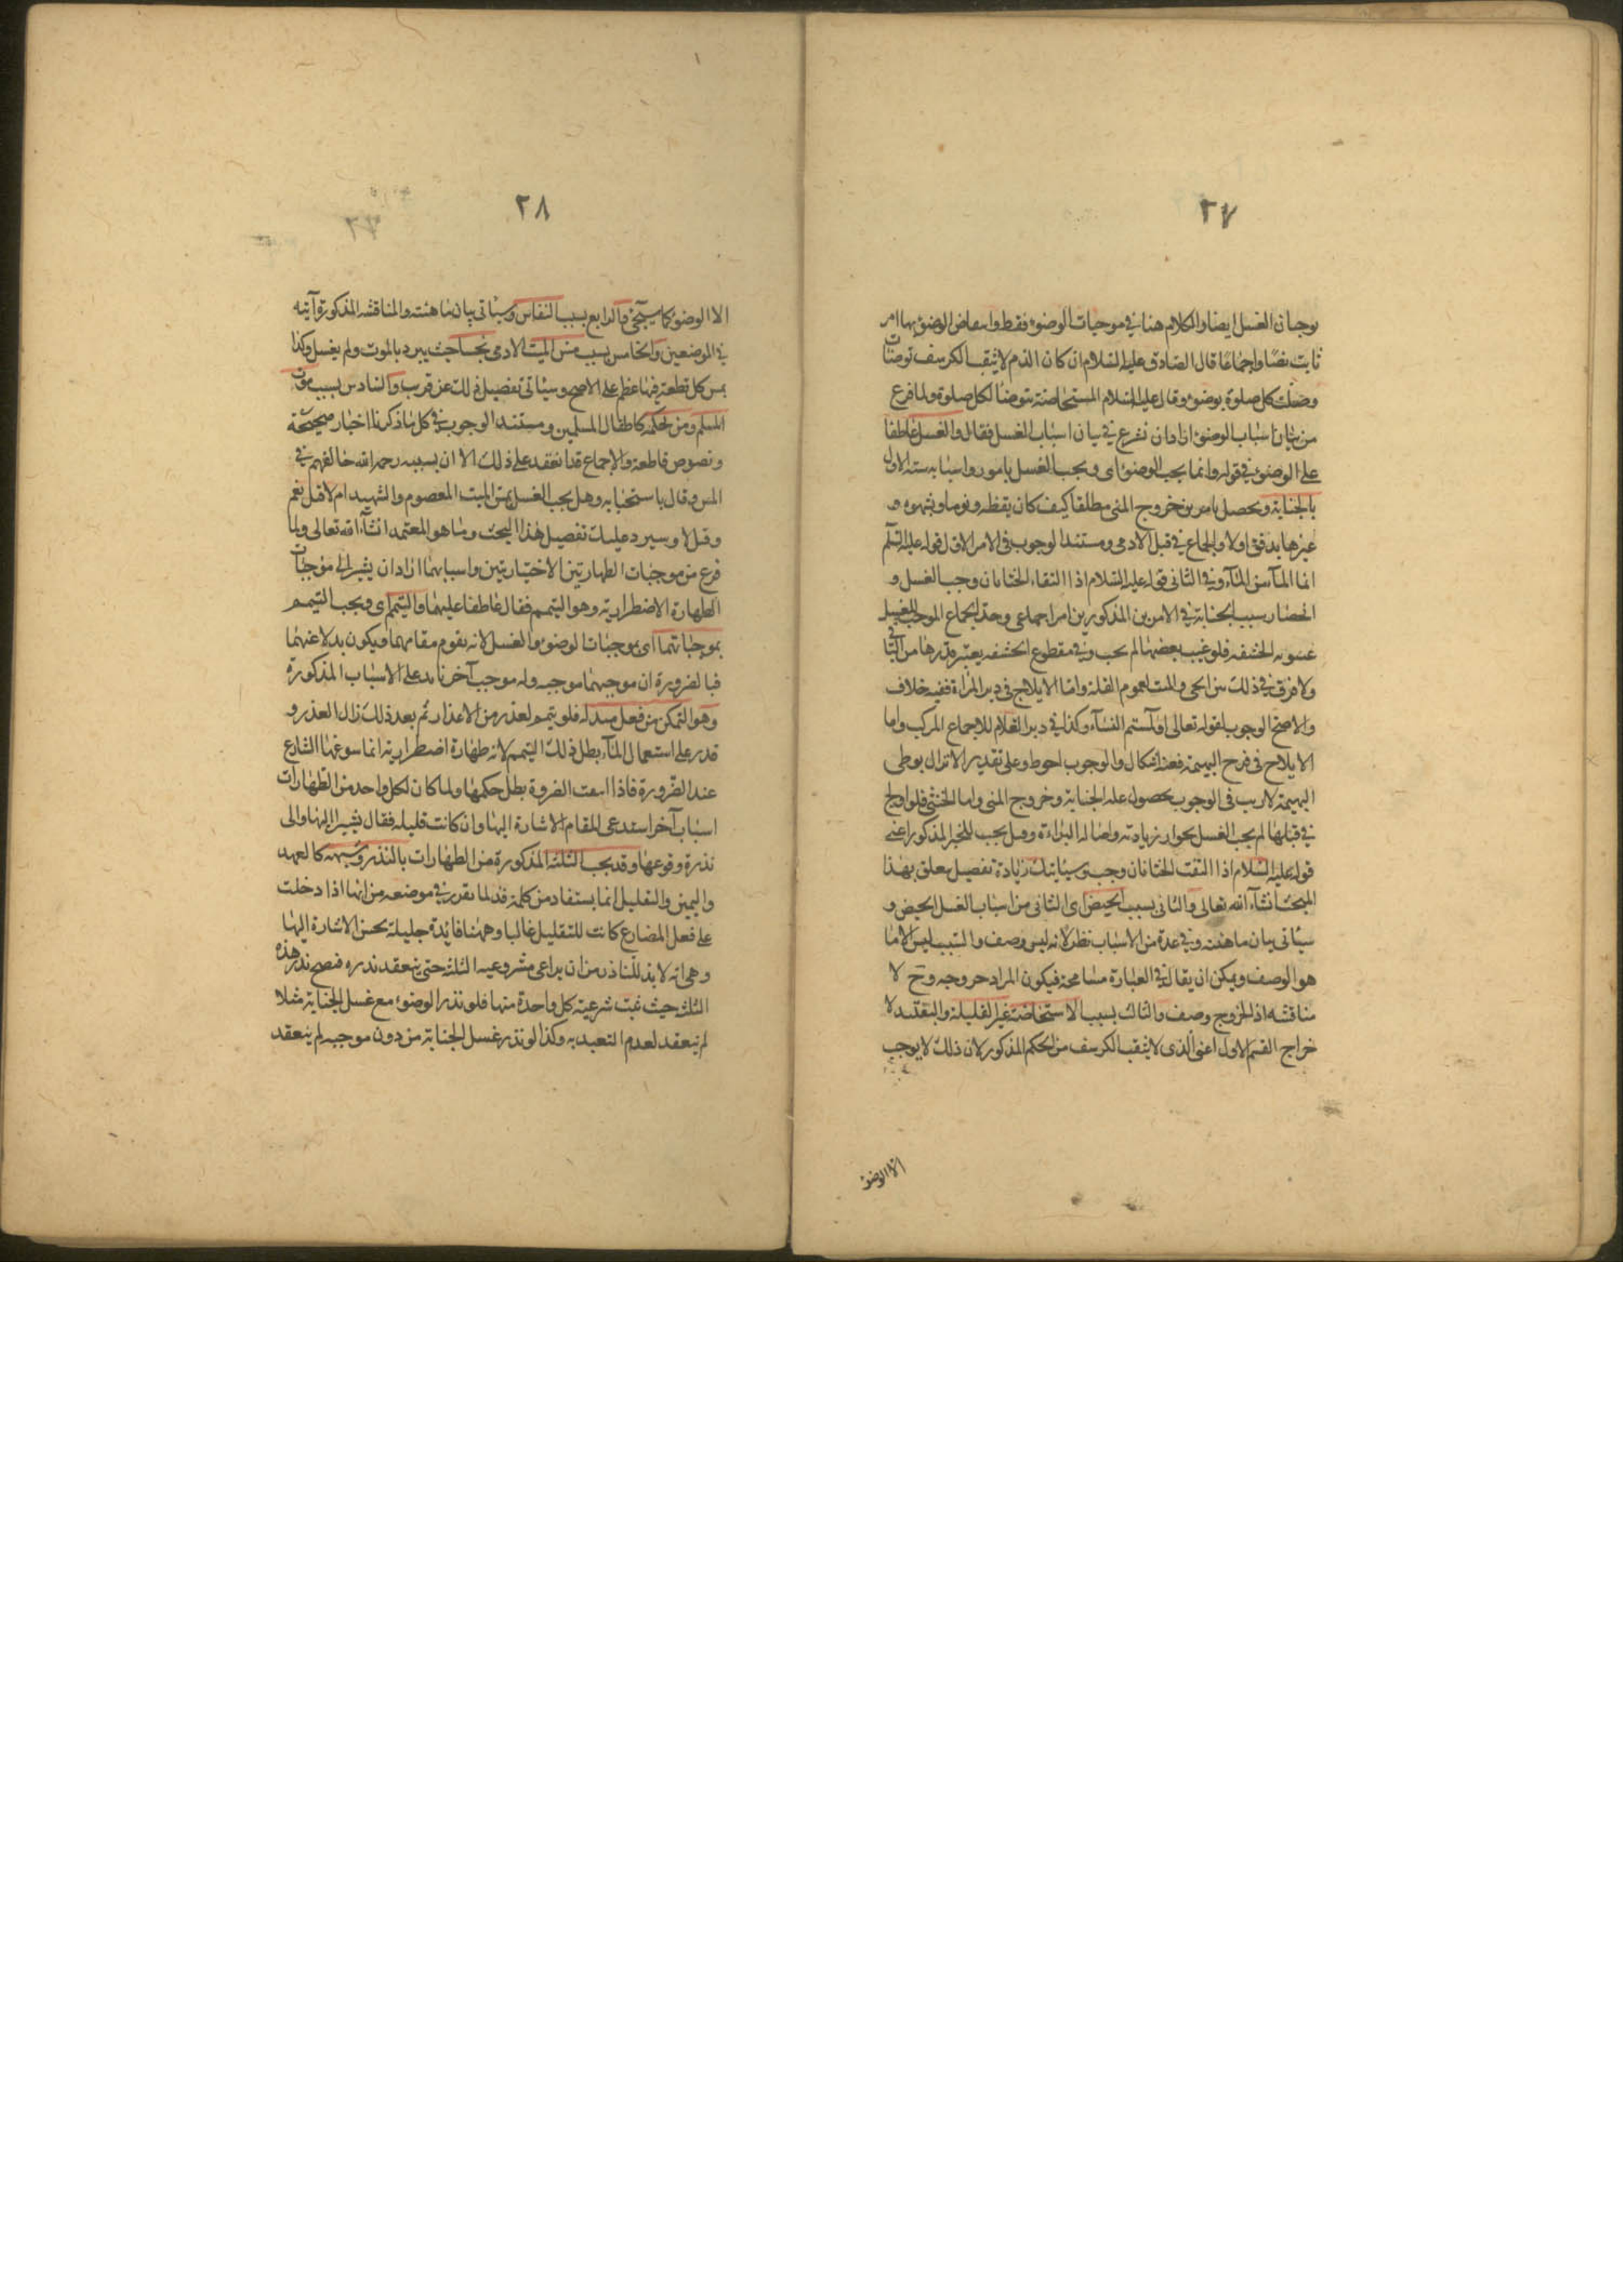 ٢٧
يوجبان الغسل ايضا والكلام هنا في موجبات الوضوء فقط وانتقاض الوضوء بهما امر
ثابت نصا واجماعا قال الصادق عليه السلام ان كان الدم لا يثقب الكرسف توضات
وصلت كل صلوة بوضوء وقال عليه السلام المستحاضة تتوضا لكل صلوة ولما فرع
من بيان اسباب الوضوء اراد ان نشرع في بيان اسباب الغسل فقال والغسل عاطفا
على الوضوء في قوله وانما يجب الوضوء اى ويجب الغسل بامور واسبابه ستة الاول
بالجنابة ويحصل بامرين خروج المنى مطلقا كيف كان يقظة ونوما وبشهوة و
غيرها بدفق اولا والجماع في قبل الادمى ومستند الوجوب فى الامر الاول قوله عليه السلم
انما الماء من الماء وفي الثانى قوله عليه السلام اذا التقاء الختانان وجب الغسل و
انحصار سبب الجنابة في الامرين المذكورين امر اجماعى وحد الجماع الموجب للغسل
غيبوبة الحشفه فلو غيب بعضها لم يجب وفي مقطوع الحشفه يعتبر قدرها من الباقي
ولا فرق في ذلك بين الحى والميت لعموم الفتلة واما الايلاج فى دبر المراة ففيه خلاف
والاصح الوجوب لقوله تعالى او لامستم النساء وكذا في دبر الغلام للاجماع المركب واما
الايلاج فى فرج البهيمة فعند اشكال والوجوب احوط وعلى تقدير الانزال بوطى
البهيمة لا ريب فى الوجوب بحصول علة الجنابة وخروج المنى واما الخنثى فلو اولج
في قبلها لم يجب الغسل بجواز زيادته واصالة البراءة وقيل يجب للخبر المذكور اعنى
قوله عليه السلام اذا التقت الختانان وجب وسياتيك زيادة تفصيل يتعلق بهذا
المبحث انشاء الله تعالى والثانى بسبب الحيض اى الثانى من اسباب الغسل الحيض و
سياتى بيان ماهيته وفي عده من الاسباب نظر لانه ليس وصف والسبب ليس الا ما
هو الوصف ويمكن ان يقال في العبارة مسامحة فيكون المراد خروجه وح لا
مناقشه اذ الخروج وصف والثالث بسبب الاستحاضة غير القليلة والتقييد لا
خراج القسم الاول اعنى الذى لا يثقب الكرسف من الحكم المذكور لان ذلك لا يوجب
الا الوضوء
٢٨
الا الوضوء كما سيجئ والرابع بسبب النفاس وسياتى بيان ماهيته والمناقشه المذكورة آتيه
في الموضعين والخامس بسبب مس الميت الادمى نجسا حيث يبرد بالموت ولم يغسل وكذا
بمس كل قطعة فيها عظم على الاصح وسياتى تفصيل ذلك عن قريب والسادس بسبب موت
المسلم ومن بحكمه كاطفال المسلمين ومستند الوجوب في كل ما ذكرنا اخبار صحيحة
ونصوص قاطعة والاجماع قد انعقد على ذلك الا ان رحمه الله خالفهم في
المس وقال باستحبابه وهل يجب الغسل بمس الميت المعصوم والشهيد ام لا قيل نعم
وقيل لا وسيرد عليك تفصيل هذا البحث وما هو المعتمد انشاء الله تعالى ولما
فرع من موجبات الطهارتين الاختياريتين واسبابهما اراد ان يشير الى موجبات
الطهارة الاضطرارية وهو التيمم فقال عاطفا عليهما والتيمم اى ويجب التيمم
بموجباتهما اى بموجبات الوضوء والغسل لانه يقوم مقامهما ويكون بدلا عنهما
فبالضرورة ان موجبهما موجبه وله موجب آخر زايد على الاسباب المذكورة
وهو التمكن من فعل مبدله فلو تيمم لعذر من الاعذار ثم بعد ذلك زال العذر و
قدر على استعمال الماء بطل ذلك التيمم لانه طهارة اضطرارية انما سوغها الشارع
عند الضرورة فاذا انتفت الضرورة بطل حكمها ولما كان لكل واحد من الطهارات
اسباب آخر استدعى المقام الاشارة اليها وان كانت قليله فقال مشيرا اليها والى
ندرة وقوعها وقد يجب الثلثة المذكورة من الطهارات بالنذر وشبهه كالعهد
واليمين والتقليل انما يستفاد من كلمة قد لما تقرر في موضعه من انها اذا دخلت
على فعل المضارع كانت للتقليل غالبا وههنا فائدة جليلة يحسن الاشارة اليها
وهى انه لا بد للناذر من ان يراعى مشروعيه الثلثه حتى ينعقد نذره فيصح نذر هذه
الثلثه حيث ثبت شرعية كل واحدة منها فلو نذر الوضوء مع غسل الجنابة مثلا
لم ينعقد لعدم التعبد به وكذا لو نذر غسل الجنابة من دون موجبه لم ينعقد